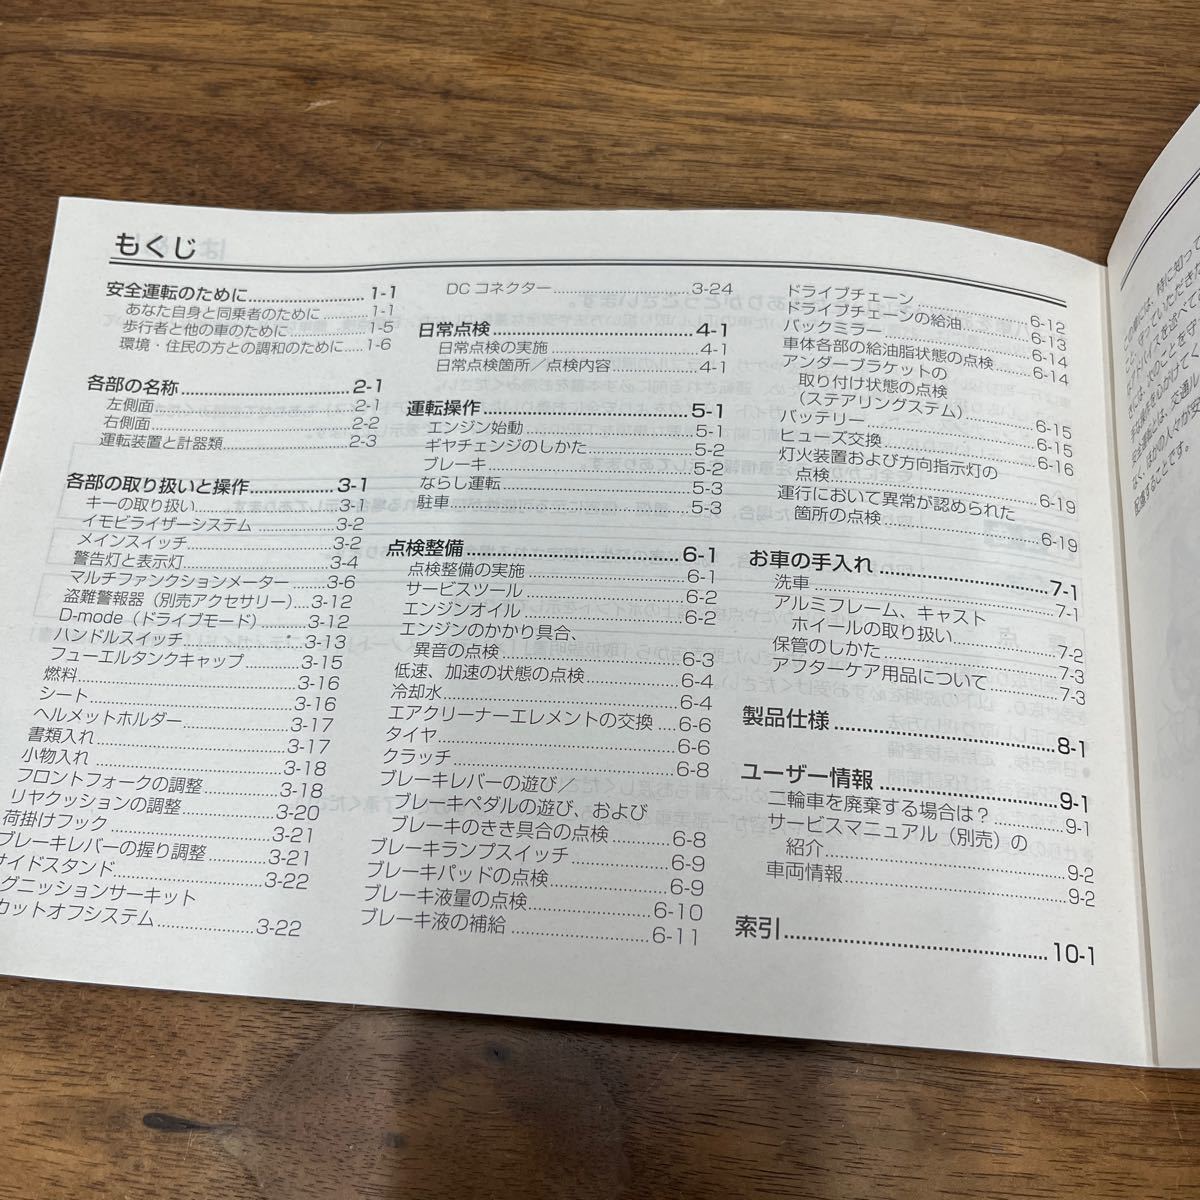 もくじ
安全運転のために 1-1
あなた自身と同乗者のために 1-1
歩行者と他の車のために 1-5
環境・住民の方との調和のために 1-6
各部の名称 2-1
左側面 2-1
右側面 2-2
運転装置と計器類 2-3
各部の取り扱いと操作 3-1
キーの取り扱い 3-1
イモビライザーシステム 3-2
メインスイッチ 3-2
警告灯と表示灯 3-4
マルチファンクションメーター 3-6
盗難警報器（別売アクセサリー） 3-12
D-mode（ドライブモード） 3-12
ハンドルスイッチ 3-13
フューエルタンクキャップ 3-15
燃料 3-16
シート 3-16
ヘルメットホルダー 3-17
書類入れ 3-17
小物入れ 3-18
フロントフォークの調整 3-18
リヤクッションの調整 3-20
荷掛けフック 3-21
ブレーキレバーの握り調整 3-21
サイドスタンド 3-22
グニッションサーキット
カットオフシステム 3-22
DC コネクター 3-24
日常点検 4-1
日常点検の実施 4-1
日常点検箇所／点検内容 4-1
運転操作 5-1
エンジン始動 5-1
ギヤチェンジのしかた 5-2
ブレーキ 5-2
ならし運転 5-3
駐車 5-3
点検整備 6-1
点検整備の実施 6-1
サービスツール 6-2
エンジンオイル 6-2
エンジンのかかり具合、
異音の点検 6-3
低速、加速の状態の点検 6-4
冷却水 6-4
エアクリーナーエレメントの交換 6-6
タイヤ 6-6
クラッチ 6-8
ブレーキレバーの遊び／
ブレーキペダルの遊び、および
ブレーキのきき具合の点検 6-8
ブレーキランプスイッチ 6-9
ブレーキパッドの点検 6-9
ブレーキ液量の点検 6-10
ブレーキ液の補給 6-11
ドライブチェーン 6-12
ドライブチェーンの給油 6-13
バックミラー 6-14
車体各部の給油脂状態の点検 6-14
アンダーブラケットの
取り付け状態の点検
（ステアリングステム） 6-15
バッテリー 6-15
ヒューズ交換 6-16
灯火装置および方向指示灯の
点検 6-19
運行において異常が認められた
箇所の点検 6-19
お車の手入れ 7-1
洗車 7-1
アルミフレーム、キャスト
ホイールの取り扱い 7-2
保管のしかた 7-3
アフターケア用品について 7-3
製品仕様 8-1
ユーザー情報 9-1
二輪車を廃棄する場合は？ 9-1
サービスマニュアル（別売）の
紹介 9-2
車両情報 9-2
索引 10-1